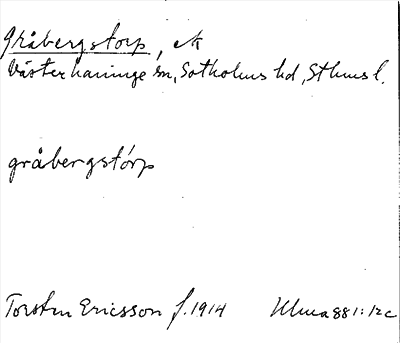 Gråbergstorp, ek
Västerhaninge sn, Sotholms hd, Sthms l.
gråbergstórp
Torsten Ericsson f. 1914 Ulma 881:12c